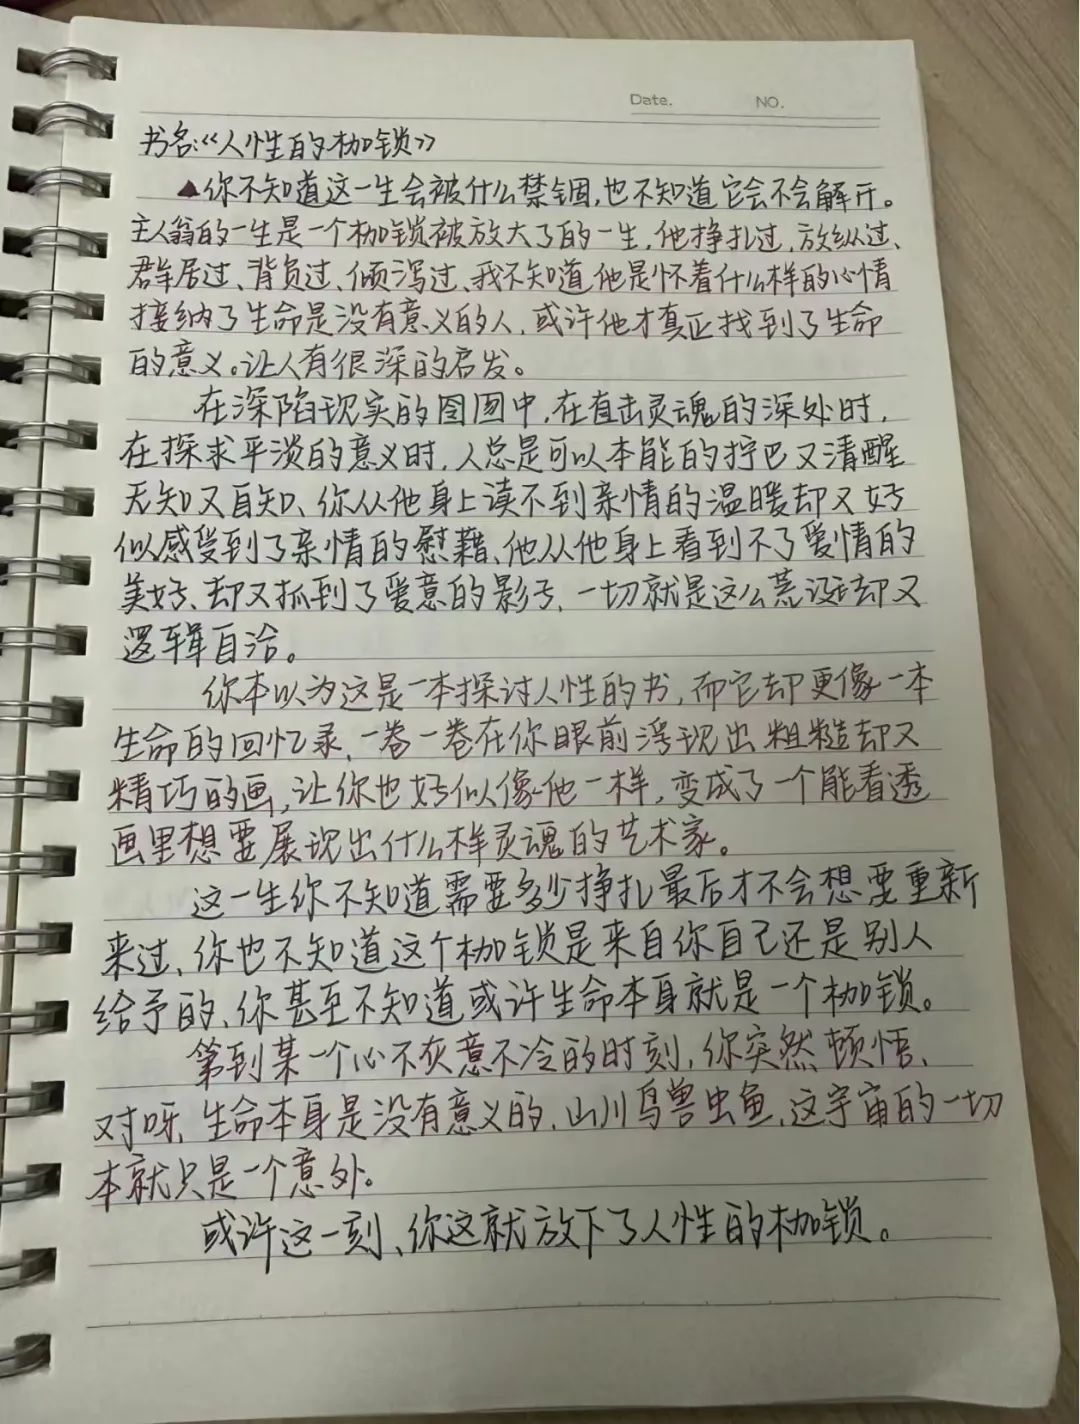 Date.
NO.
书名:《人性的枷锁》
▲你不知道这一生会被什么禁锢,也不知道它会不会解开。
主人翁的一生是一个枷锁被放大了的一生,他挣扎过,放纵过、
群居过、背负过、倾泻过、我不知道他是怀着什么样的心情
接纳了生命是没有意义的人,或许他才真正找到了生命
的意义。让人有很深的启发。
在深陷现实的囹圄中,在直击灵魂的深处时,
在探求平淡的意义时,人总是可以本能的拧巴又清醒
无知又自知、你从他身上读不到亲情的温暖却又好
似感受到了亲情的慰藉、他从他身上看到不了爱情的
美好、却又抓到了爱意的影子,一切就是这么荒诞却又
逻辑自洽。
你本以为这是一本探讨人性的书,而它却更像一本
生命的回忆录,一卷一卷在你眼前浮现出粗糙却又
精巧的画,让你也好似像他一样,变成了一个能看透
画里想要展现出什么样灵魂的艺术家。
这一生你不知道需要多少挣扎最后才不会想要重新
来过、你也不知道这个枷锁是来自你自己还是别人
给予的、你甚至不知道或许生命本身就是一个枷锁。
等到某一个心不灰意不冷的时刻,你突然顿悟、
对呀,生命本身是没有意义的,山川鸟兽虫鱼,这宇宙的一切
本就只是一个意外。
或许这一刻、你这就放下了人性的枷锁。